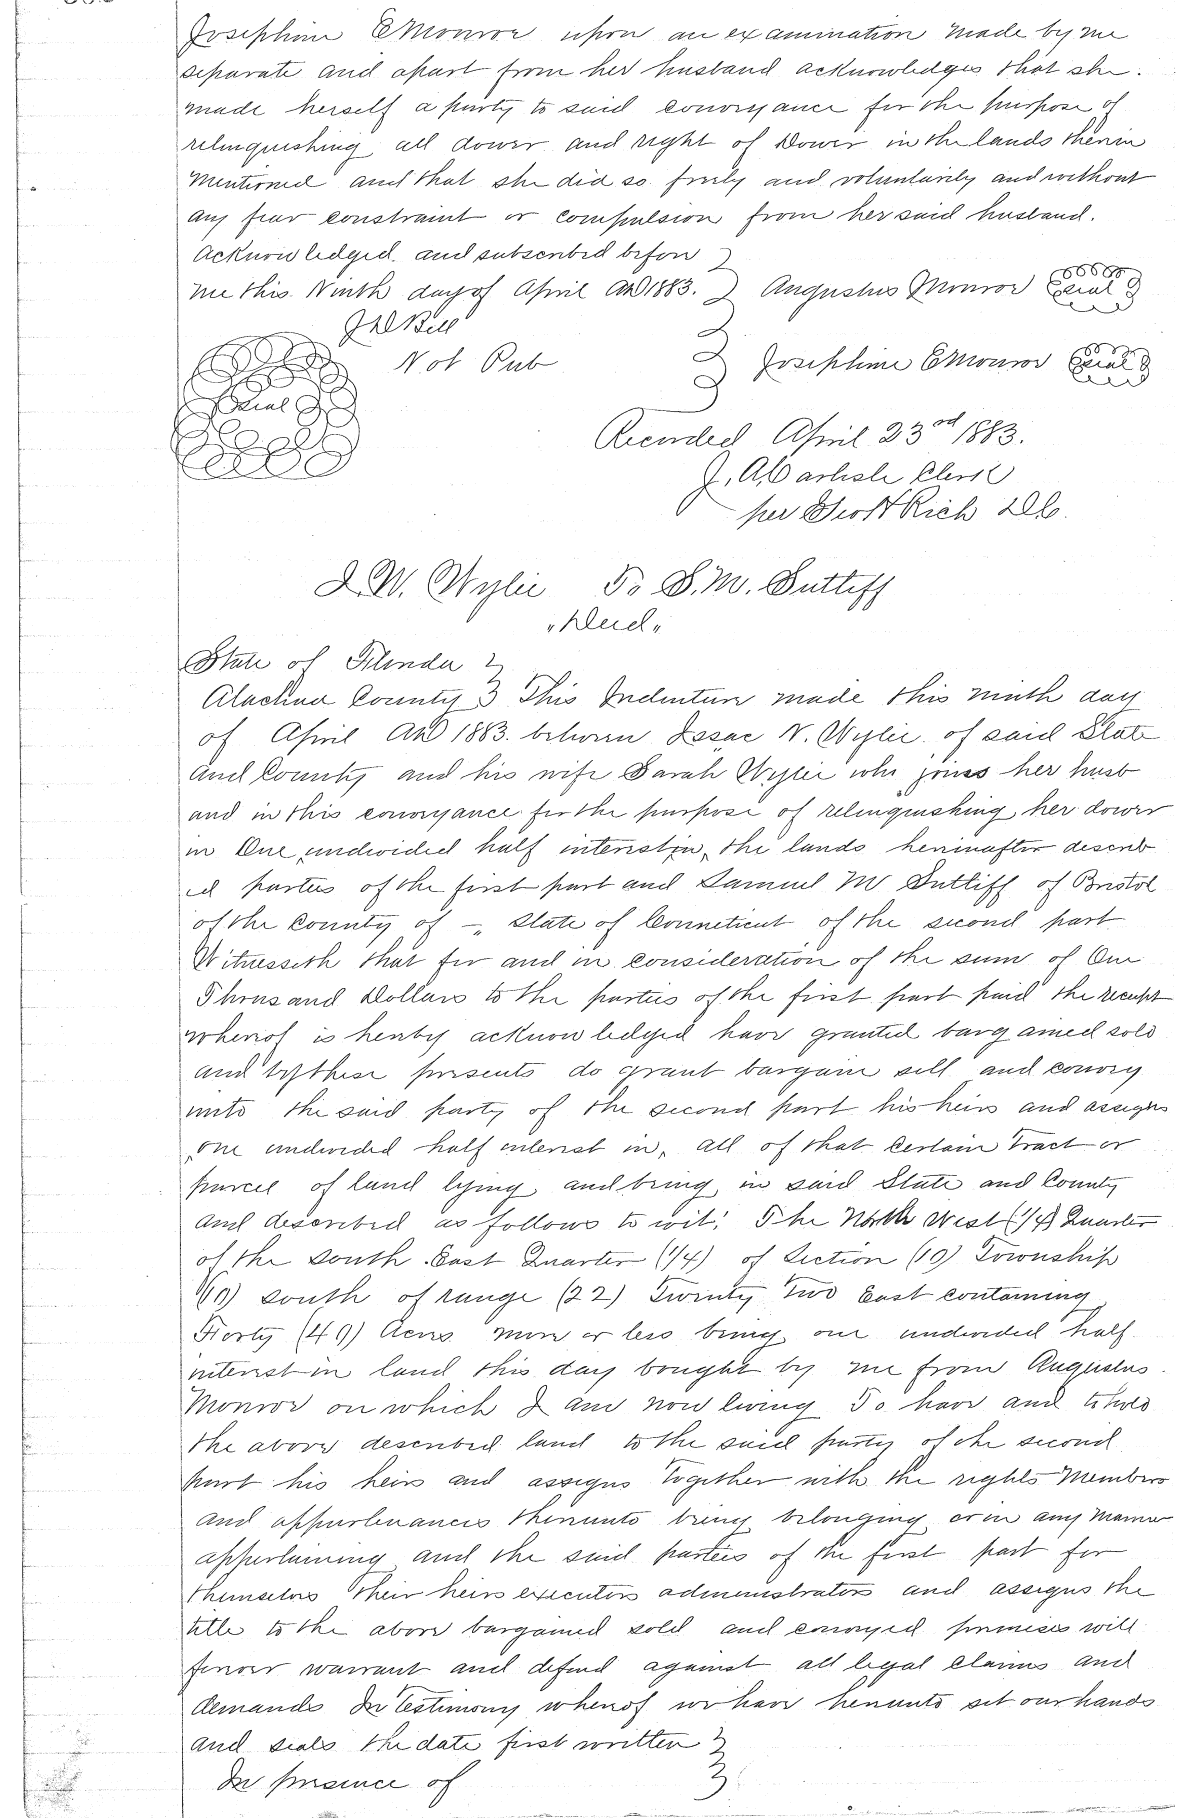 Josephine E Monroe upon an examination made by me
separate and apart from her husband acknowledges that she
made herself a party to said conveyance for the purpose of
relinquishing all dower and right of Dower in the lands therein
mentioned and that she did so freely and voluntarily and without
any fear constraint or compulsion from her said husband.
Acknowledged and subscribed before
me this Ninth day of April AD 1883. Augustus Monroe Seal
Not Pub Josephine E Monroe Seal
Seal
Recorded April 23rd 1883.
J. A. Carlisle Clerk
per Rich D.C.
I. W. Wylie To S. M. Sutliff
"Deed"
State of Florida
Alachua County This Indenture made this ninth day
of April AD 1883. between Isaac W. Wylie of said State
and County and his wife Sarah Wylie who joins her husb
and in this conveyance for the purpose of relinquishing her dower
in One undivided half interest in, the lands hereinafter describ
ed parties of the first part and Samuel M Sutliff of Bristol
of the County of — State of Conneticut of the second part
Witnesseth that for and in consideration of the sum of One
Thousand Dollars to the parties of the first part paid the receipt
whereof is hereby acknowledged have granted bargained sold
and by these presents do grant bargain sell and convey
unto the said party of the second part his heirs and assigns
one undivided half interest in, all of that certain tract or
parcel of land lying and being in said State and County
and described as follows to wit: The North West (1/4) Quarter
of the South East Quarter (1/4) of Section (10) Township
(10) south of range (22) Twenty Two East containing
Forty (40) Acres more or less being one undivided half
interest in land this day bought by me from Augustus
Monroe on which I am now living To have and to hold
the above described land to the said party of the second
part his heirs and assigns together with the rights Members
and appurtenances thereunto being belonging or in any manner
appertaining and the said parties of the first part for
themselves their heirs executors administrators and assigns the
title to the above bargained sold and conveyed premises will
forever warrant and defend against all legal claims and
demands In Testimony whereof we have hereunto set our hands
and seals the date first written
In presence of